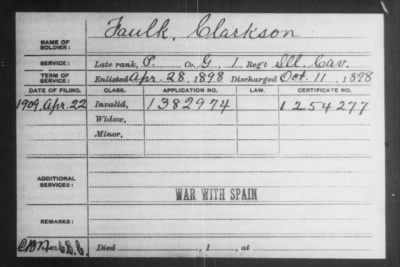 Faulk, Clarkson
NAME OF SOLDIER:
SERVICE: Late rank, P. Co. G, 1 Reg't Ill. Cav.
TERM OF SERVICE: Enlisted Apr. 28, 1898 Discharged Oct. 11, 1898
DATE OF FILING. CLASS. APPLICATION NO. LAW. CERTIFICATE NO.
1909, Apr. 22 Invalid, 1382974 1254277
Widow,
Minor,
ADDITIONAL SERVICES:
WAR WITH SPAIN
REMARKS:
Died , 1 , at